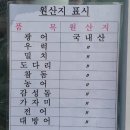 원산지 표시
품목 원산지
광어 국내산
우럭 〃
밀치 〃
도다리 〃
참돔 〃
농어 〃
감성돔 〃
가자미 〃
전어 〃
대방어 〃